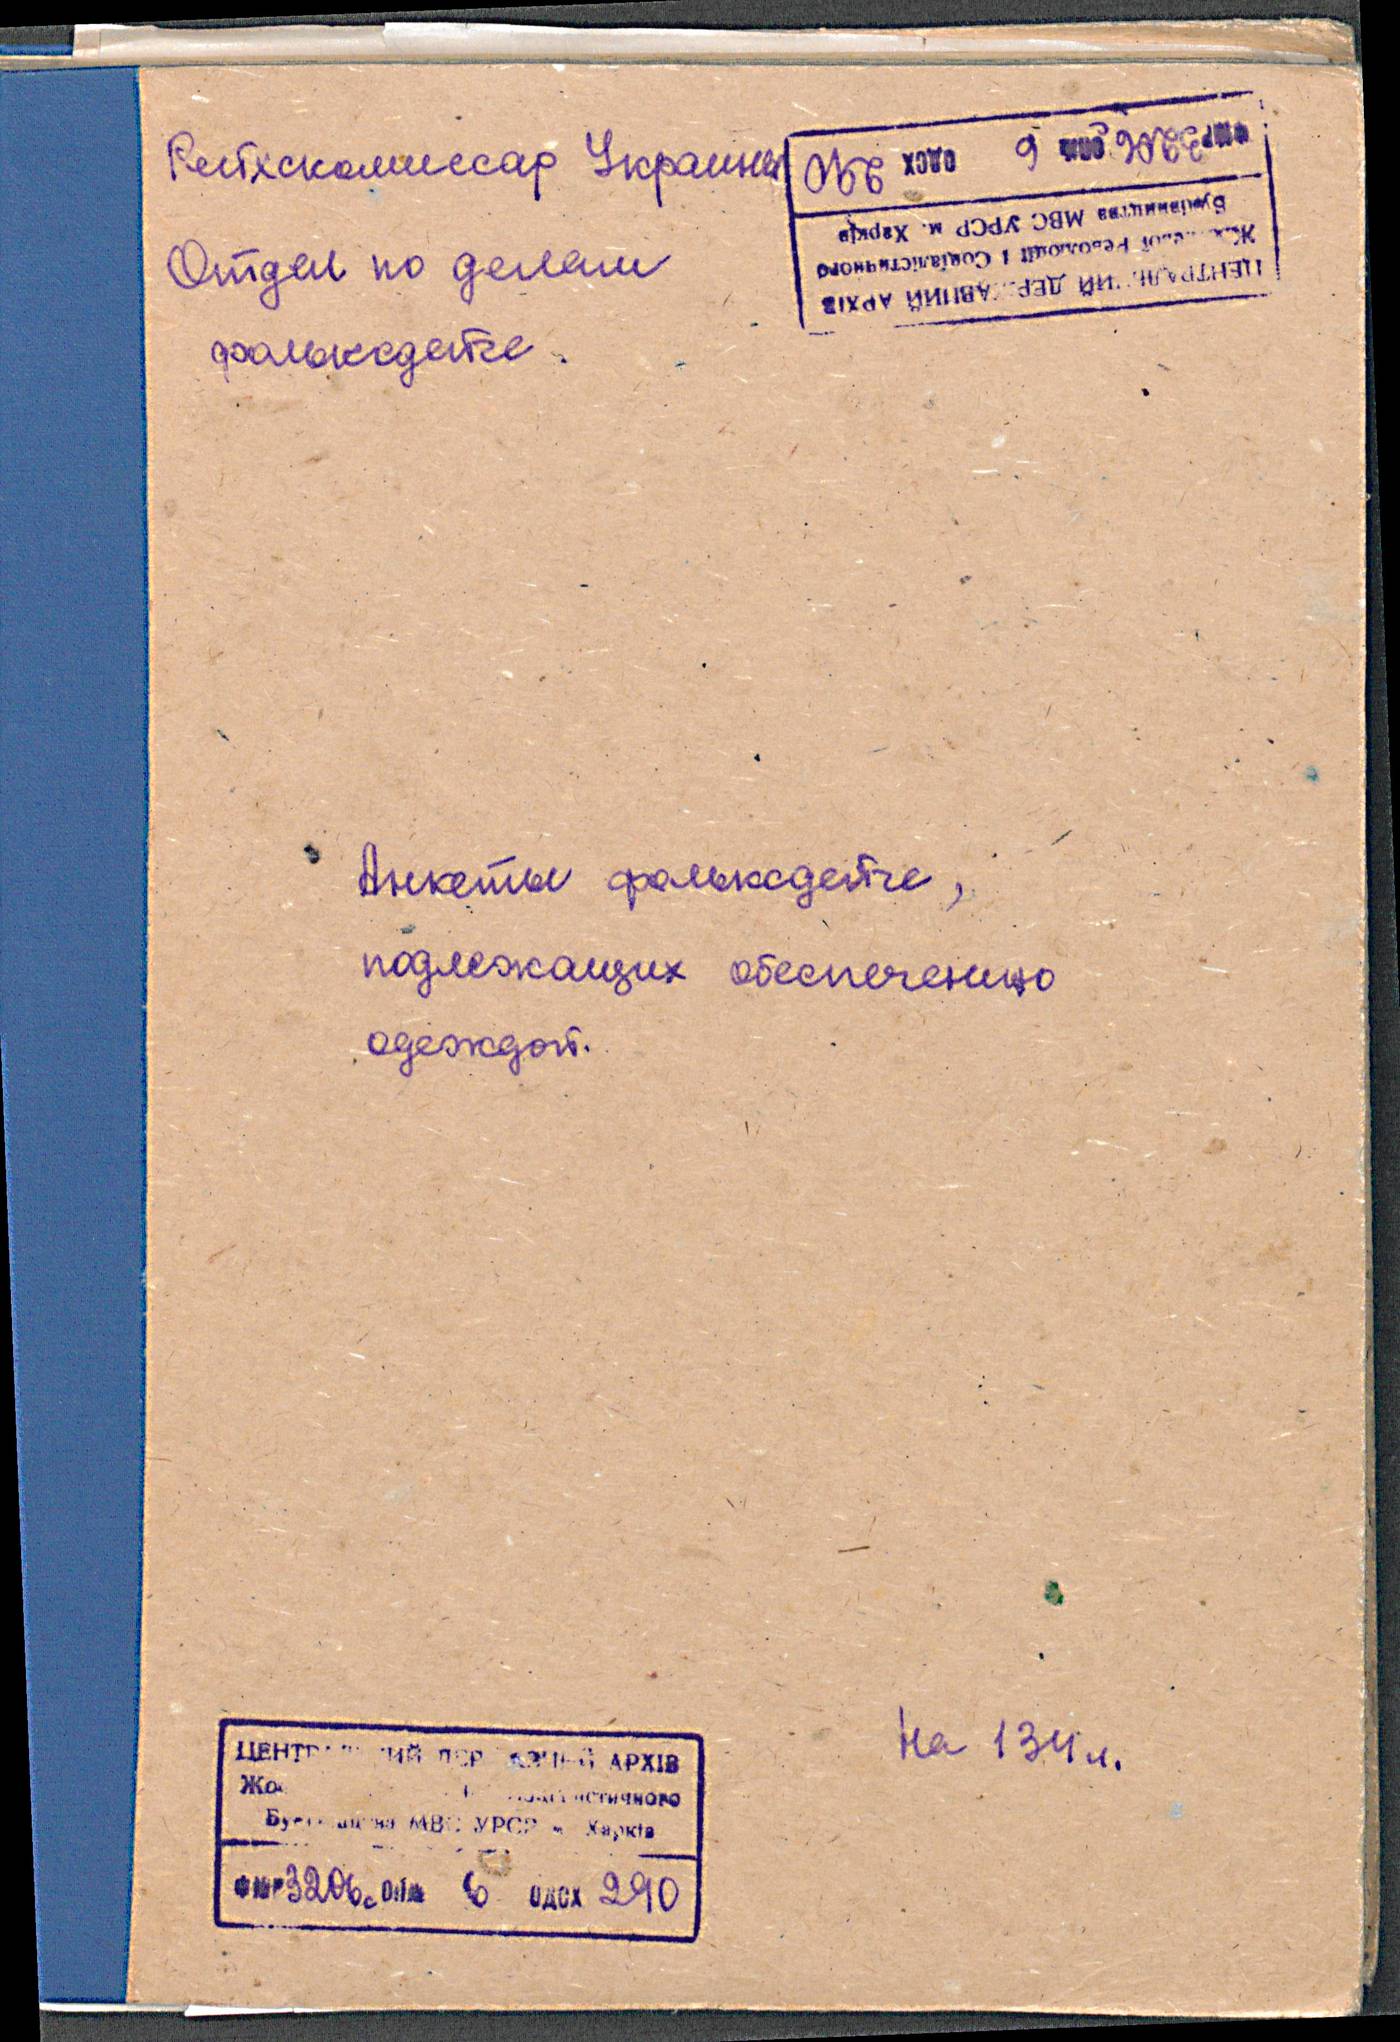 Рейхскомиссар Украины
Отдел по делам
фольксдейче.
ЦЕНТРАЛЬНИЙ ДЕРЖАВНИЙ АРХІВ
Революції і Соціалістичного
Будівництва МВС УРСР м. Харків
3206с 6 ОДСХ 290
Анкеты фольксдейче,
подлежащих обеспечению
одеждой.
На 134 л.
ЦЕНТРАЛЬНИЙ ДЕРЖАВНИЙ АРХІВ
Соціалістичного
Будівництва МВС УРСР м. Харків
3206с 6 ОДСХ 290